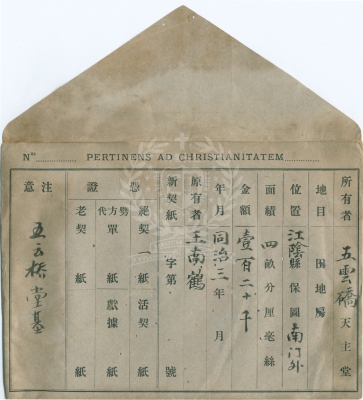 Nº PERTINENS AD CHRISTIANITATEM
所有者 五雲橋 天主堂
地目 園地房
位置 江陰縣 保圖 南門外
面積 四畝 分 厘 毫 絲
金額 壹百二十千
年月 同治三年 月
原有者 王南鶴
新契紙 字第 號
憑證 絕契 一紙 活契 紙
代勞 方單 紙 獻據 紙
老契 紙 紙
注意 五云橋堂基